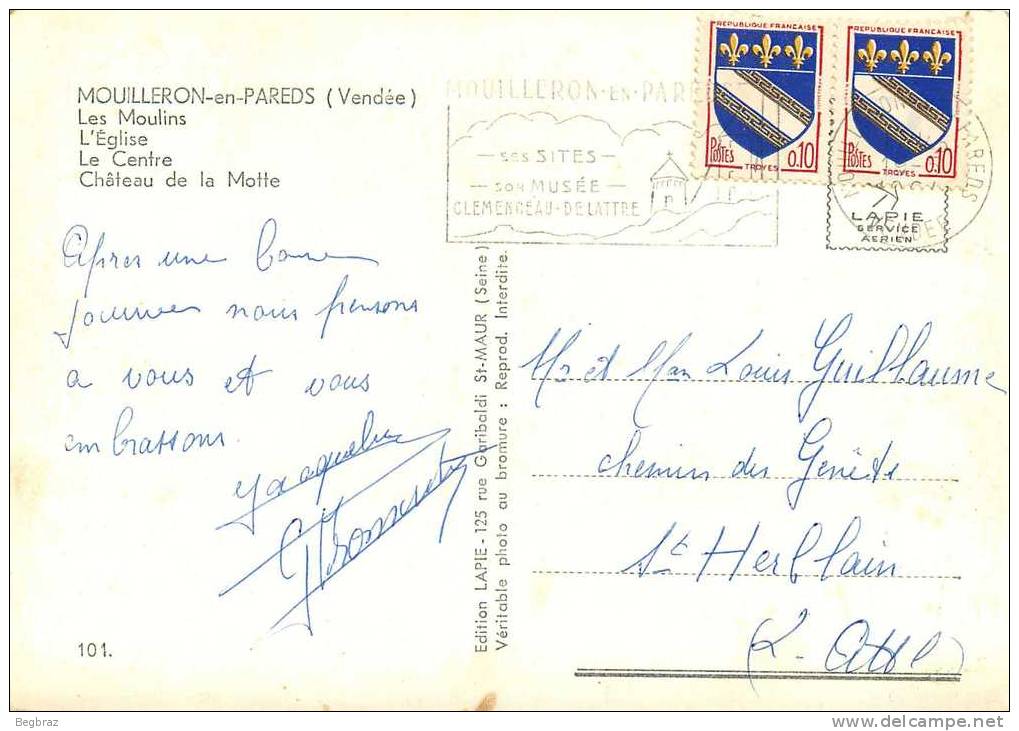 MOUILLERON-en-PAREDS (Vendée)
Les Moulins
L'Église
Le Centre
Château de la Motte
Après une bonne
journée nous pensons
a vous et vous
embrassons.
Jacqueline
101.
MOUILLERON-EN-PAREDS
SES SITES
SON MUSÉE
CLEMENCEAU-DELATTRE
REPUBLIQUE FRANÇAISE
POSTES
0.10
TROYES
REPUBLIQUE FRANÇAISE
POSTES
0.10
TROYES
LAPIE
SERVICE
AERIEN
Edition LAPIE - 125 rue Garibaldi St-MAUR (Seine)
Véritable photo au bromure : Reprod. Interdite.
Mr et Mme Louis Guillaume
chemin des Genêts
St Herblain
(L. Atl)
Begbraz
www.delcampe.net